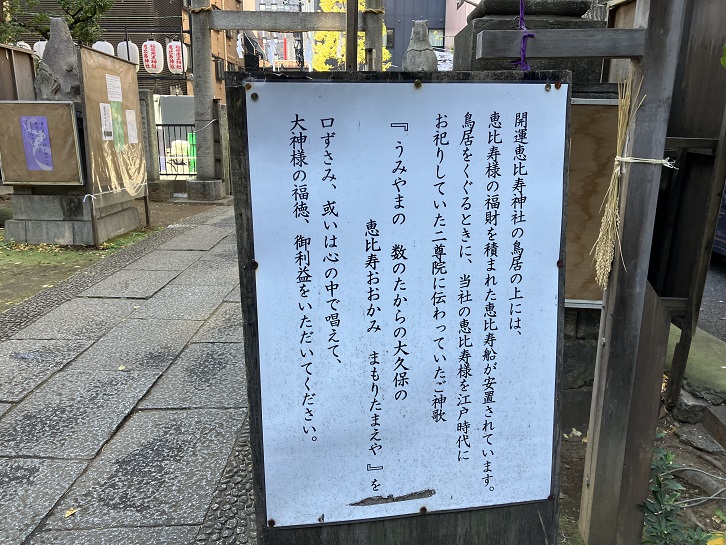 開運恵比寿神社の鳥居の上には、
恵比寿様の福財を積まれた恵比寿船が安置されています。
鳥居をくぐるときに、当社の恵比寿様を江戸時代に
お祀りしていた二尊院に伝わっていたご神歌
『うみやまの 数のたからの大久保の
恵比寿おおかみ まもりたまえや』を
口ずさみ、或いは心の中で唱えて、
大神様の福徳、御利益をいただいてください。